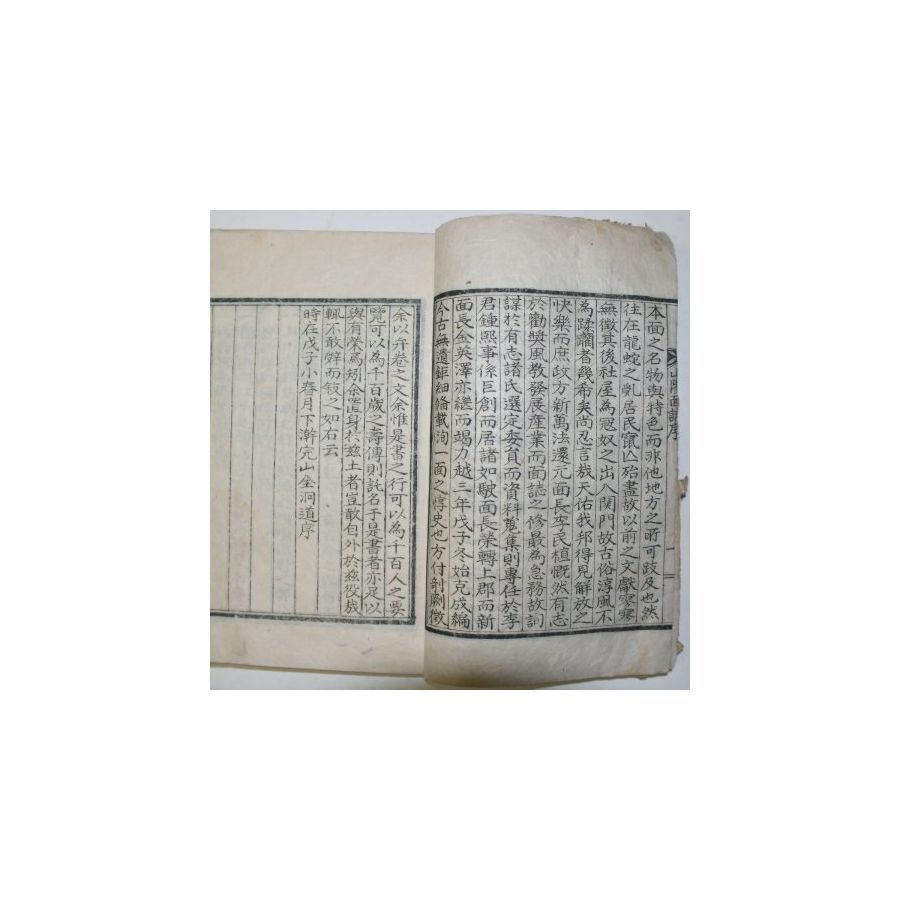 山陽面誌序
本面之名物與特色而非他地方之所可跂及也然
往在龍蛇之乱居民竄亾殆盡故以前之文獻寥寥
無徵其後社屋為冦奴之出入関門故古俗淳風不
為蹂躪者幾希矣尚忍言哉天佑我邦得見解放之
快樂而庶政方新萬法還元面長李民植慨然有志
於勸奬風敎發展産業而面誌之修最為急務故詢
謀於有志諸氏選定委員而資料蒐集則專任於李
君鍾熙事係巨創而居諸如駛面長榮轉上郡而新
面長金英澤亦繼而竭力越三年戊子冬始克成編
今古無遺鉅細條載洵一面之惇史也方付剞劂徵
余以弁卷之文余惟是書之行可以為千百人之要
覽可以為千百歲之壽傳則託名于是書者亦足以
與有榮焉矧余置身於玆土者豈敢自外於玆役哉
輒不敢辭而叙之如右云
時在戊子小春月下澣完山全洞道序